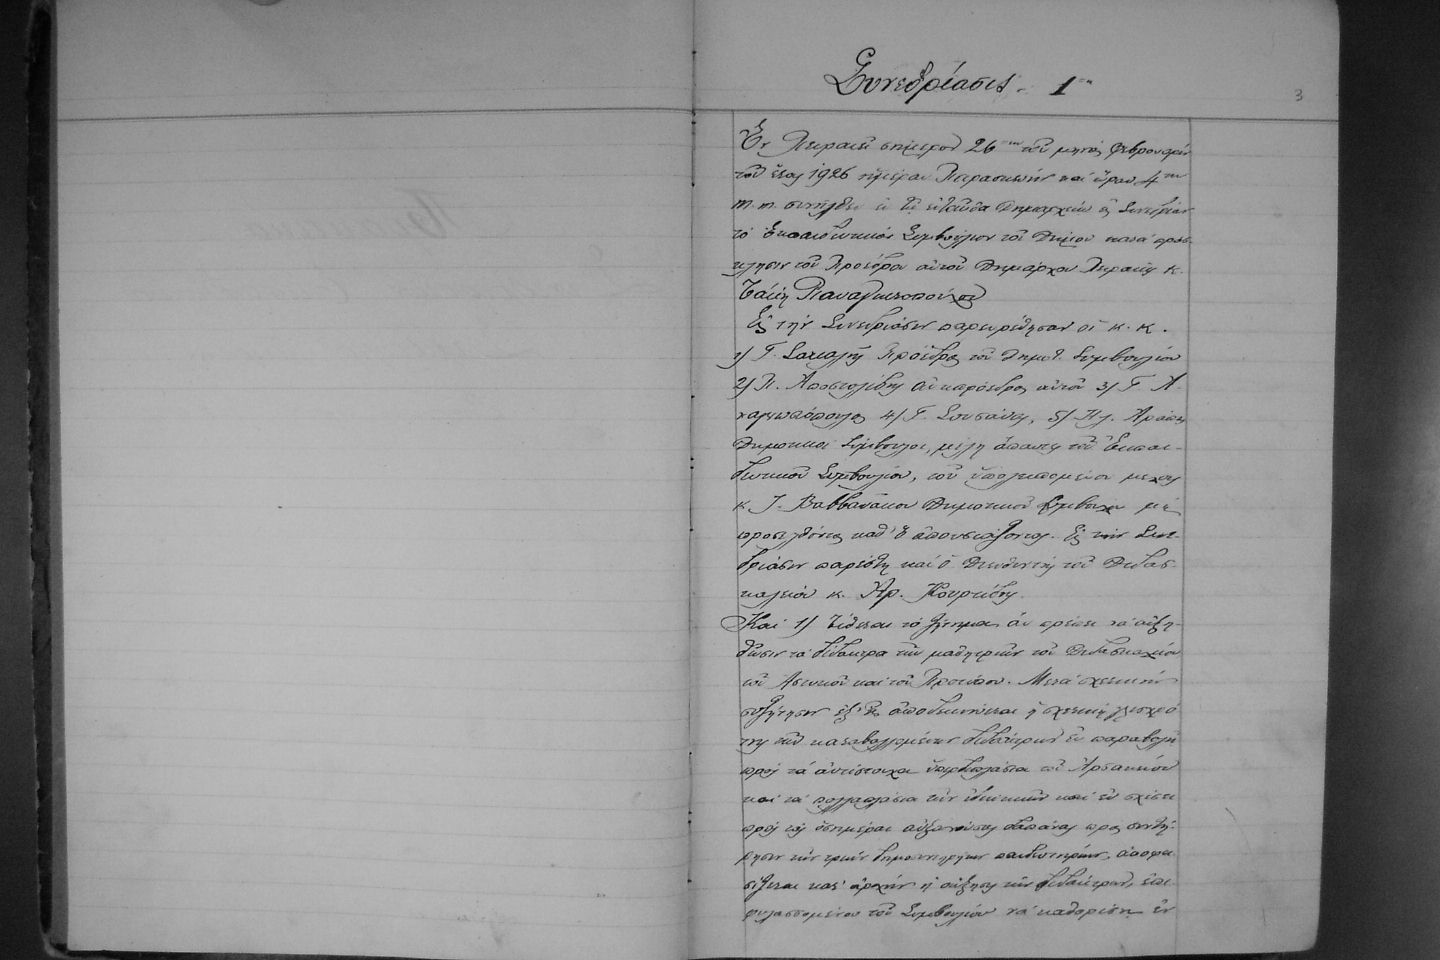 Συνεδρίασις 1η
3
Ἐν Πειραιεῖ σήμερον 26ην τοῦ μηνὸς Φεβρουαρίου
τοῦ ἔτους 1926 ἡμέραν Παρασκευὴν καὶ ὥραν 4ην
μ.μ. συνῆλθεν ἐν τῷ ἐνταῦθα Δημαρχείῳ εἰς Συνεδρίαν
τὸ Ἐκπαιδευτικὸν Συμβούλιον τοῦ Δήμου κατὰ πρόσ-
κλησιν τοῦ Προέδρου αὐτοῦ Δημάρχου Πειραιῶς κ.
Τάκη Παναγιωτοπούλου
Εἰς τὴν Συνεδρίασιν παρευρέθησαν οἱ κ.κ.
1) Γ. Πρόεδρος τοῦ Δημοτ. Συμβουλίου
2) Π. Ἀποστολίδης Ἀντιπρόεδρος αὐτοῦ 3) Γ. Ἀ-
4) Γ. 5) Πλ.
Δημοτικοὶ Σύμβουλοι, μέλη ἅπαντες τοῦ Ἐκπαι-
δευτικοῦ Συμβουλίου, τοῦ ὑπολειπομένου μέλους
κ. Ι. Δημοτικοῦ Συμβούλου μὴ
προσελθόντος καθ' ὃ ἀπουσιάζοντος. Εἰς τὴν Συνε-
δρίασιν παρέστη καὶ ὁ Διευθυντὴς τοῦ Διδασ-
καλείου κ. Ἀρ. Κουρτίδης.
Καὶ 1) Τίθεται τὸ ζήτημα ἂν πρέπει νὰ αὐξη-
θῶσιν τὰ δίδακτρα τῶν μαθητριῶν τοῦ Διδασκαλείου
τοῦ Ἀστικοῦ καὶ τοῦ Προτύπου. Μετὰ σχετικὴν
συζήτησιν ἐξ ἧς ἀποδεικνύεται ἡ σχετικὴ γλισχρό
της τῶν καταβαλλομένων διδάκτρων ἐν παραβολῇ
πρὸς τὰ ἀντίστοιχα ὑπερδιπλάσια τοῦ Ἀρσακείου
καὶ τὰ πολλαπλάσια τῶν ἰδιωτικῶν καὶ ἐν σχέσει
πρὸς τὰς ὁσημέραι αὐξανούσας δαπάνας πρὸς συντή-
ρησιν τῶν τριῶν δημοσυντηρήτων παιδευτηρίων, ἀποφα
σίζεται κατ' ἀρχὴν ἡ αὔξησις τῶν διδάκτρων, ἐπι
φυλασσομένου τοῦ Συμβουλίου νὰ καθορίσῃ ἐν